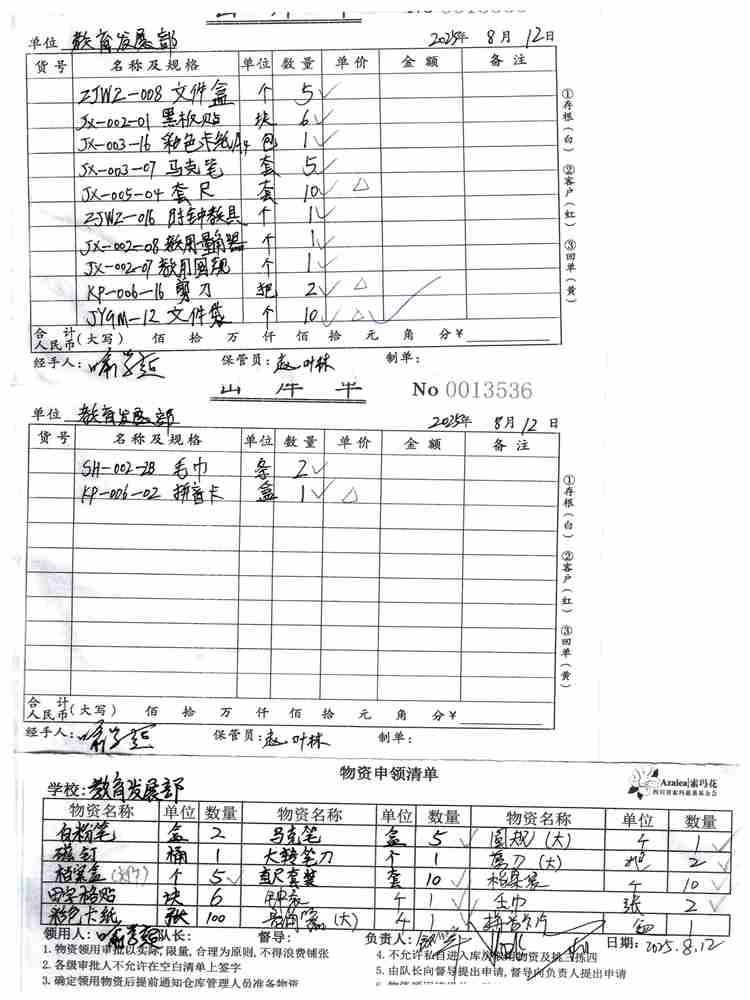 出库单 No 0013535
单位 教育发展部 2025年 8月 12日
货号 名称及规格 单位 数量 单价 金额 备注
ZJWZ-008 文件盒 个 5 ✓
JX-002-01 黑板贴 块 6 ✓
JX-003-16 彩色卡纸A4 包 1 ✓
JX-003-07 马克笔 套 5 ✓
JX-005-04 套尺 套 10 ✓ △
ZJWZ-016 时钟教具 个 1 ✓
JX-002-08 教用量角器 个 1 ✓
JX-002-07 教用圆规 个 1 ✓
KP-006-16 剪刀 把 2 ✓ △
JYGM-12 文件袋 个 10 ✓ △ ✓
合计人民币(大写) 佰 拾 万 仟 佰 拾 元 角 分 ¥
经手人: 保管员: 赵叶林 制单:
①存根(白) ②客户(红) ③回单(黄)
No 0013536
单位 教育发展部 2025年 8月 12日
货号 名称及规格 单位 数量 单价 金额 备注
SH-002-2B 毛巾 条 2 ✓
KP-006-02 拼音卡 盒 1 ✓ △
合计人民币(大写) 佰 拾 万 仟 佰 拾 元 角 分 ¥
经手人: 保管员: 赵叶林 制单:
①存根(白) ②客户(红) ③回单(黄)
物资申领清单
Azalea|索玛花
四川省索玛慈善基金会
学校: 教育发展部
物资名称 单位 数量 物资名称 单位 数量 物资名称 单位 数量
白粉笔 盒 2 马克笔 盒 5 ✓ 圆规(大) 个 1 ✓
磁钉 桶 1 大转笔刀 个 1 剪刀(大) 把 2 ✓
档案盒 个 5 ✓ 直尺套装 套 10 ✓ 档案袋 个 10 ✓
田字格贴 块 6 钟表 个 1 ✓ 毛巾 张 2 ✓
彩色卡纸 张 100 (大) 个 1 ✓ 拼音卡片 1
领用人: 队长: 督导: 负责人: 日期: 2025.8.12
1. 物资领用审批以实际,限量,合理为原则,不得浪费铺张
2. 各级审批人不允许在空白清单上签字
3. 确定领用物资后提前通知仓库管理人员准备物资
4. 不允许私自进入库房领用物资及挑三拣四
5. 由队长向督导提出申请,督导向负责人提出申请